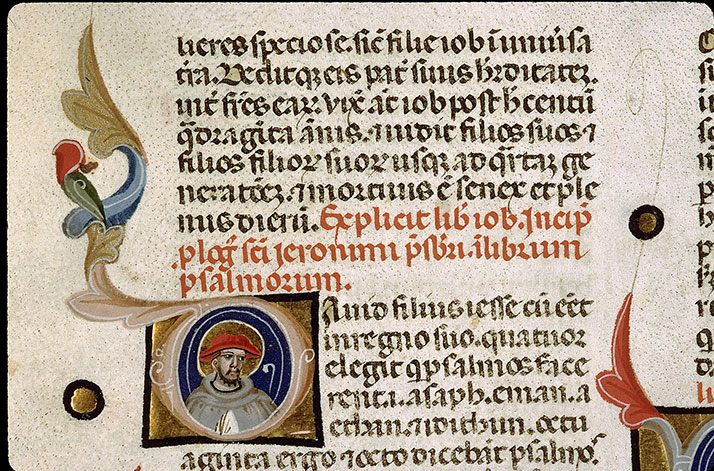 lieres speciose. sic̄ filie iob ī uniūsa
tr̄a. Deditq; eis pat̄ suus hr̄ditatez.
int̄ fr̄es eaꝝ. vix̄ aūt iob post h̄ centū
q̄dragīta ānis. ⁊ uidit filios suos ⁊
filios filioꝝ suoꝝ usq; ad q̄rtaz ge
neratōez. ⁊ mortuus ē senex et ple
nus dierū. Explicit lib̄ iob. Incip̄
plog̃ sc̄i ieronimi p̄sb̄ri. ī librum
psalmorum.
Dauid filius iesse cū eēt
in regno suo. quatuor
elegit q̄ psalmos face
rent. i. asaph. eman. a
ethan. ⁊ idithun. octu
aginta ergo ⁊ octo dicebāt psalmoˢ